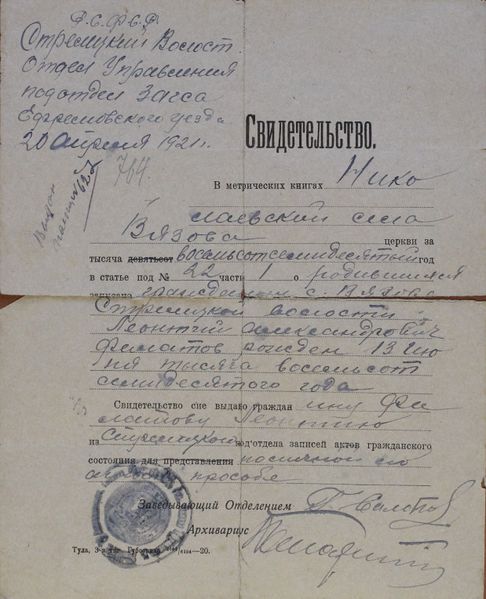 Р.С.Ф.С.Р
Стрелицкий Волост.
Отдел Управления
подотдел Загса
Ефремовского уезда
20 апреля 1921 г.
764.
Свидетельство.
В метрических книгах Нико
лаевский села
Вязова церкви за
тысяча девятьсот восемьсотсемидесятый год
в статье под № 22 части 1 о родившихся
записано гражданин с. Вязова
Стрелицкой волости
Леонтий Александрович
Филатов рожден 13 Ию
ня тысяча восемьсот
семидесятого года
Свидетельство сие выдано граждан ину Фи
латову Леонтию
из Стрелицкого подотдела записей актов гражданского
состояния для представления
просьбе
Заведывающий Отделением
Архивариус
Тула, 3-я Губ —20.